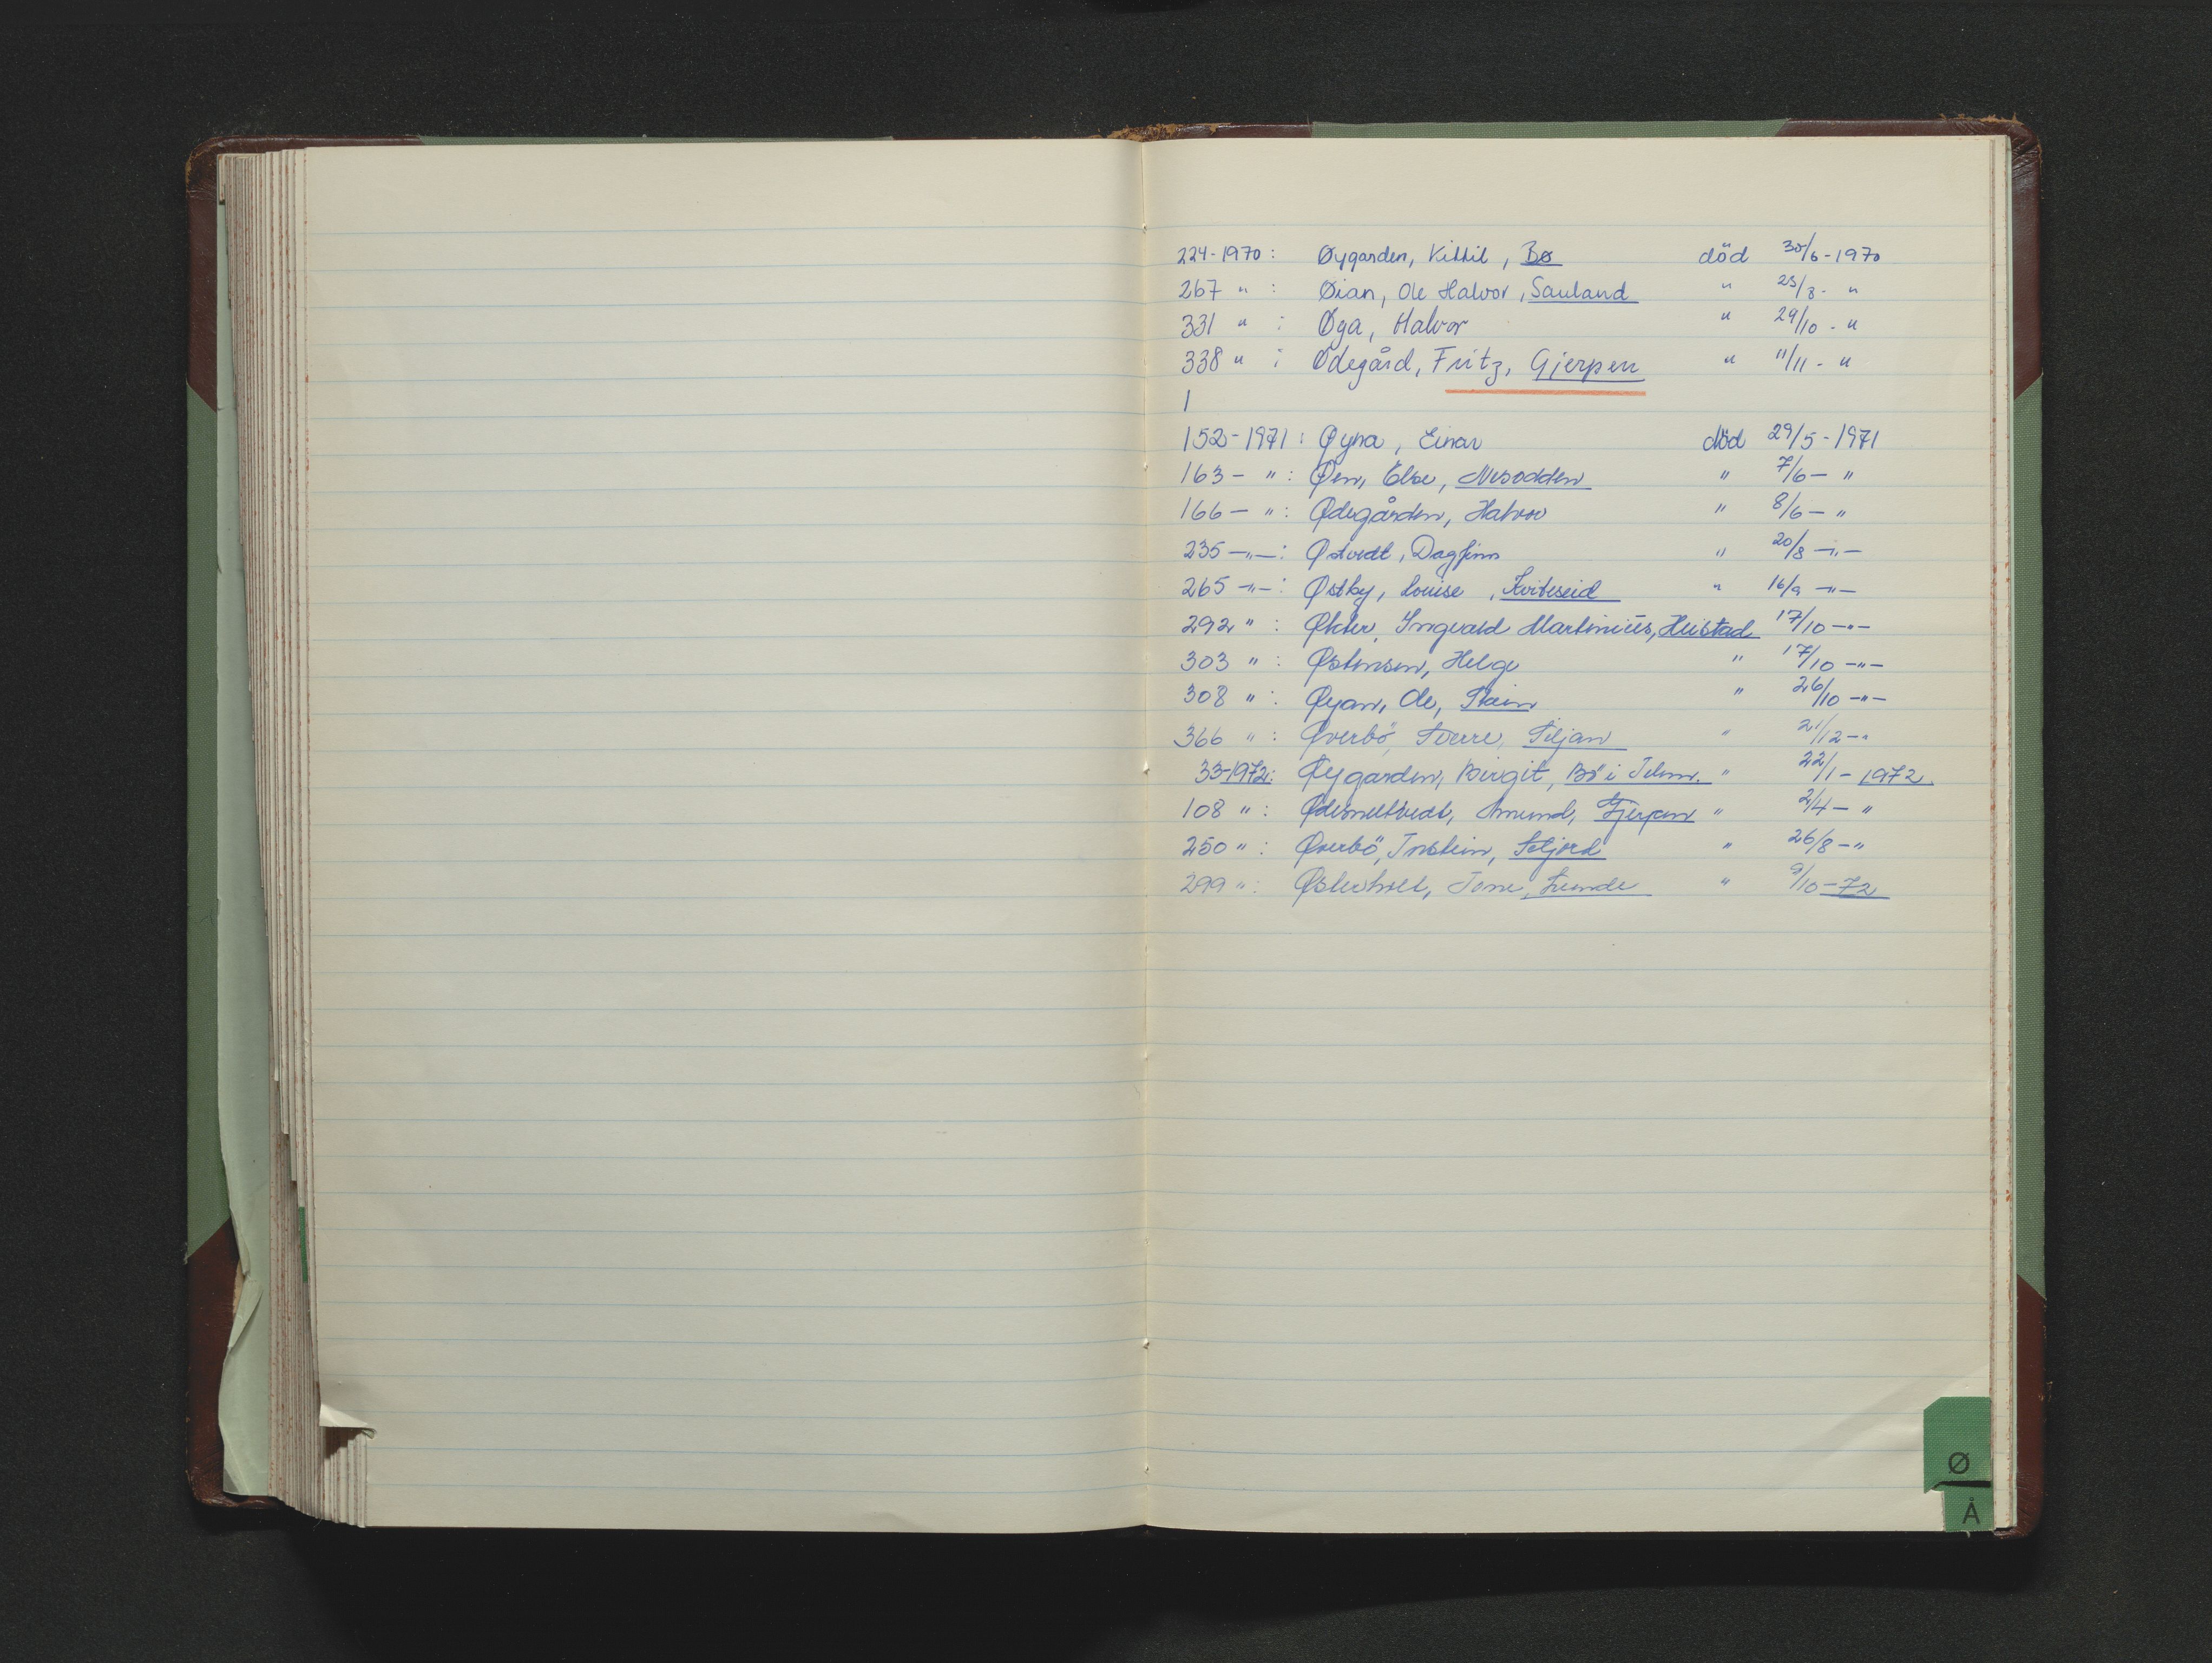 224-1970: Øygarden, Kittil, Bø död 30/6-1970
267 " : Øian, Ole Halvor, Sauland " 23/8- "
331 " : Øga, Halvor " 29/10- "
338 " : Ødegård, Fritz, Gjerpen " 11/11- "
1
152-1971: Øyna, Einar död 29/5-1971
163- ": Øen, Else, Nesodden " 7/6- "
166- ": Ødegården, Halvor " 8/6- "
235-"-: Østvedt, Dagfinn " 20/8 -"-
265-"-: Østby, Louise, Kviteseid " 16/9 -"-
292 " : Økter, Ingvald Martinius, Heistad 17/10-"-
303 " : Østensen, Helge " 17/10-"-
308 " : Øyan, Ole, Skien " 26/10-"-
366 " : Øverbö, Sverre, Siljan " 21/12-"
33-1972: Øygarden, Birgit, Bö i Telem. " 22/1-1972.
108 " : Amund, Gjerpen " 2/4- "
250 " : Øverbö, Torstein, Seljord " 26/8-"
299 " : Østerholt, Tone, Lunde " 9/10-72
Ø
Å